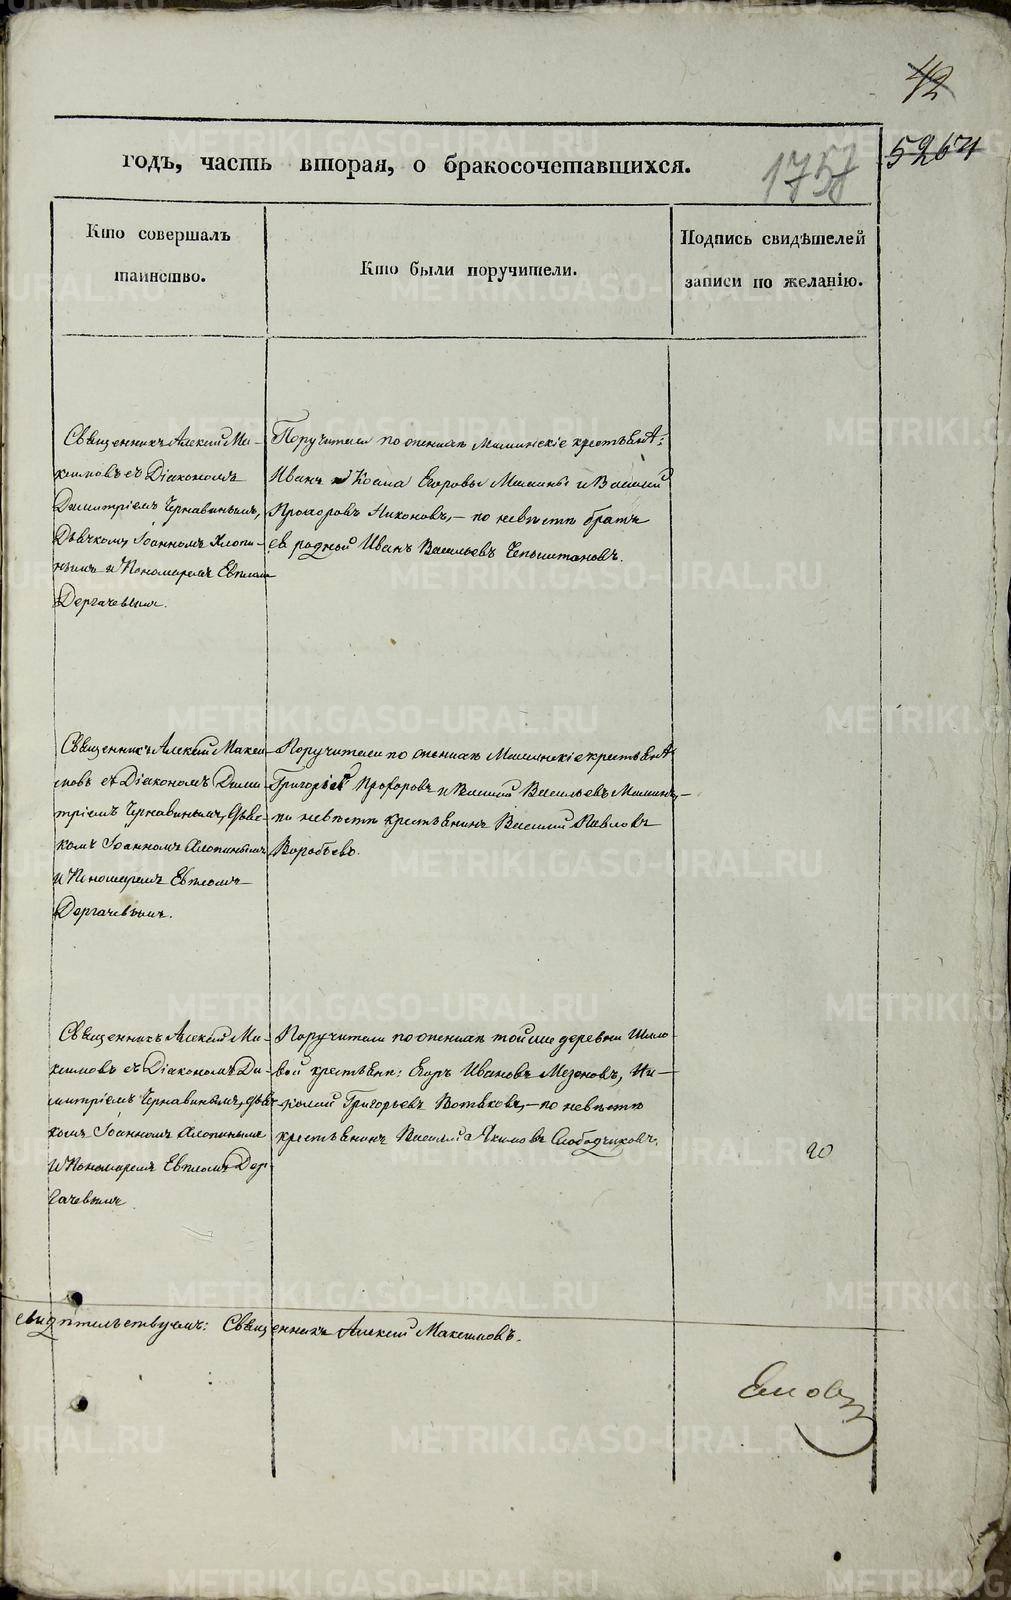 42
5264
годъ, часть вторая, о бракосочетавшихся.
1757
Кто совершалъ
таинство.
Кто были поручители.
Подпись свидѣтелей
записи по желанію.
Священникъ Алексій Ма-
ксимовъ съ Діакономъ
Димитріемъ Чернавинымъ,
Дьячкомъ Іоанномъ Хлопи-
нымъ и Пономаремъ Евпломъ
Дергачевымъ.
Поручители по женихѣ Маминскіе крестьяне:
Иванъ и Козма Егоровы Мамины и Василій
Прохоровъ Никоновъ, – по невѣстѣ братъ
ея родной Иванъ Васильевъ Чепыштановъ.
Священникъ Алексій Макси-
мовъ съ Діакономъ Дими-
тріемъ Чернавинымъ, Дьяч-
комъ Іоанномъ Хлопинымъ
и Пономаремъ Евпломъ
Дергачевымъ.
Поручители по женихѣ Маминскіе крестьяне
Григорій Прохоровъ и Василій Васильевъ Мамины, –
по невѣстѣ крестьянинъ Василій Павловъ
Воробьевъ.
Священникъ Алексій Ма-
ксимовъ съ Діакономъ Ди-
митріемъ Чернавинымъ, Дьяч-
комъ Іоанномъ Хлопинымъ
и Пономаремъ Евпломъ Дер-
гачевымъ
Поручители по женихѣ той же деревни Шило-
вой крестьяне: Егоръ Ивановъ Мезеновъ, Ни-
колай Григорьевъ Вотяковъ, – по невѣстѣ
крестьянинъ Василій Якимовъ Слободчиковъ.
20
свидѣтельствуемъ: Священникъ Алексій Максимовъ.
METRIKI.GASO-URAL.RU